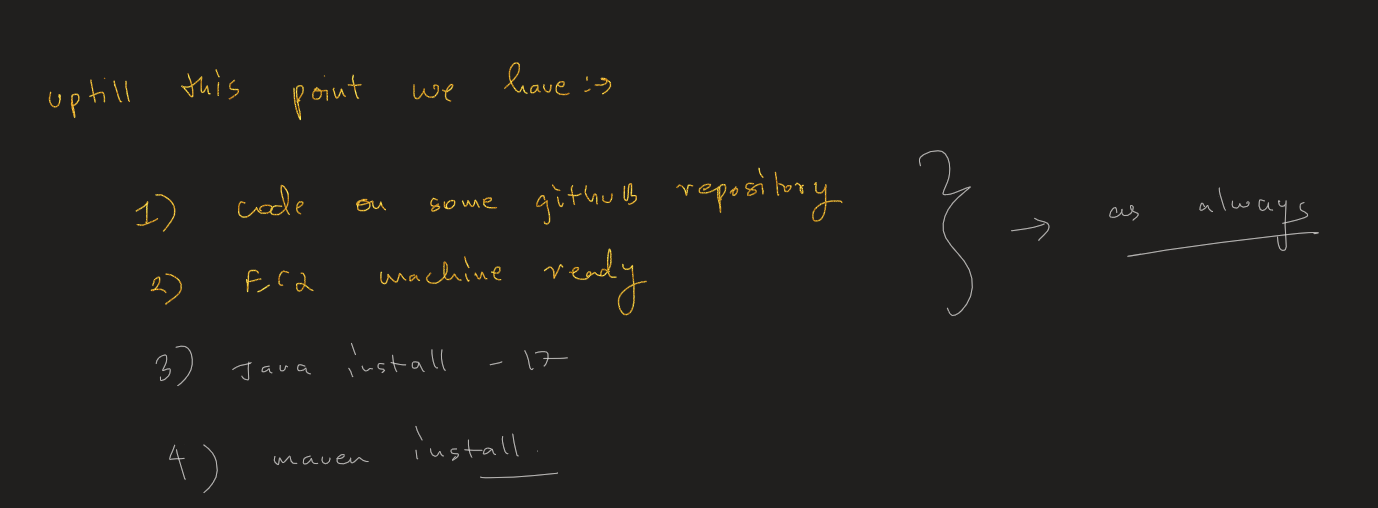 uptill this point we have :→
1) code on some github repository
2) EC2 machine ready
} → as always
3) Java install - 17
4) maven install.